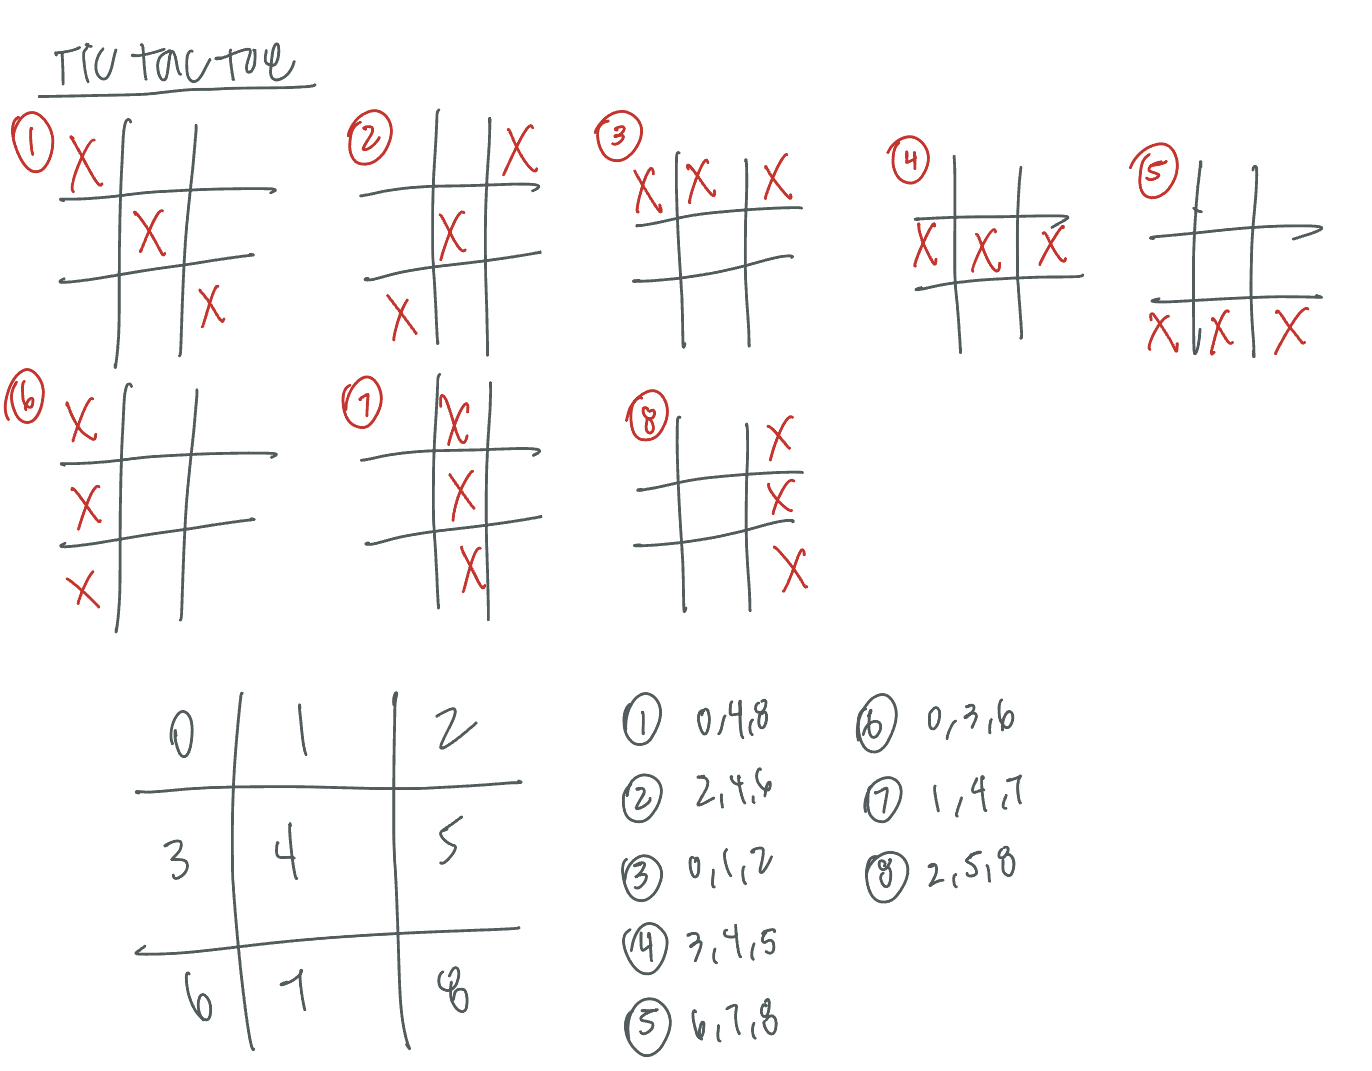 TIC TAC TOE
1 2 3 4 5
X X X X X
X X X X X
X X X X X
6 7 8
X X X
X X X
X X X
0 1 2
3 4 5
6 7 8
1 0,4,8
2 2,4,6
3 0,1,2
4 3,4,5
5 6,7,8
6 0,3,6
7 1,4,7
8 2,5,8